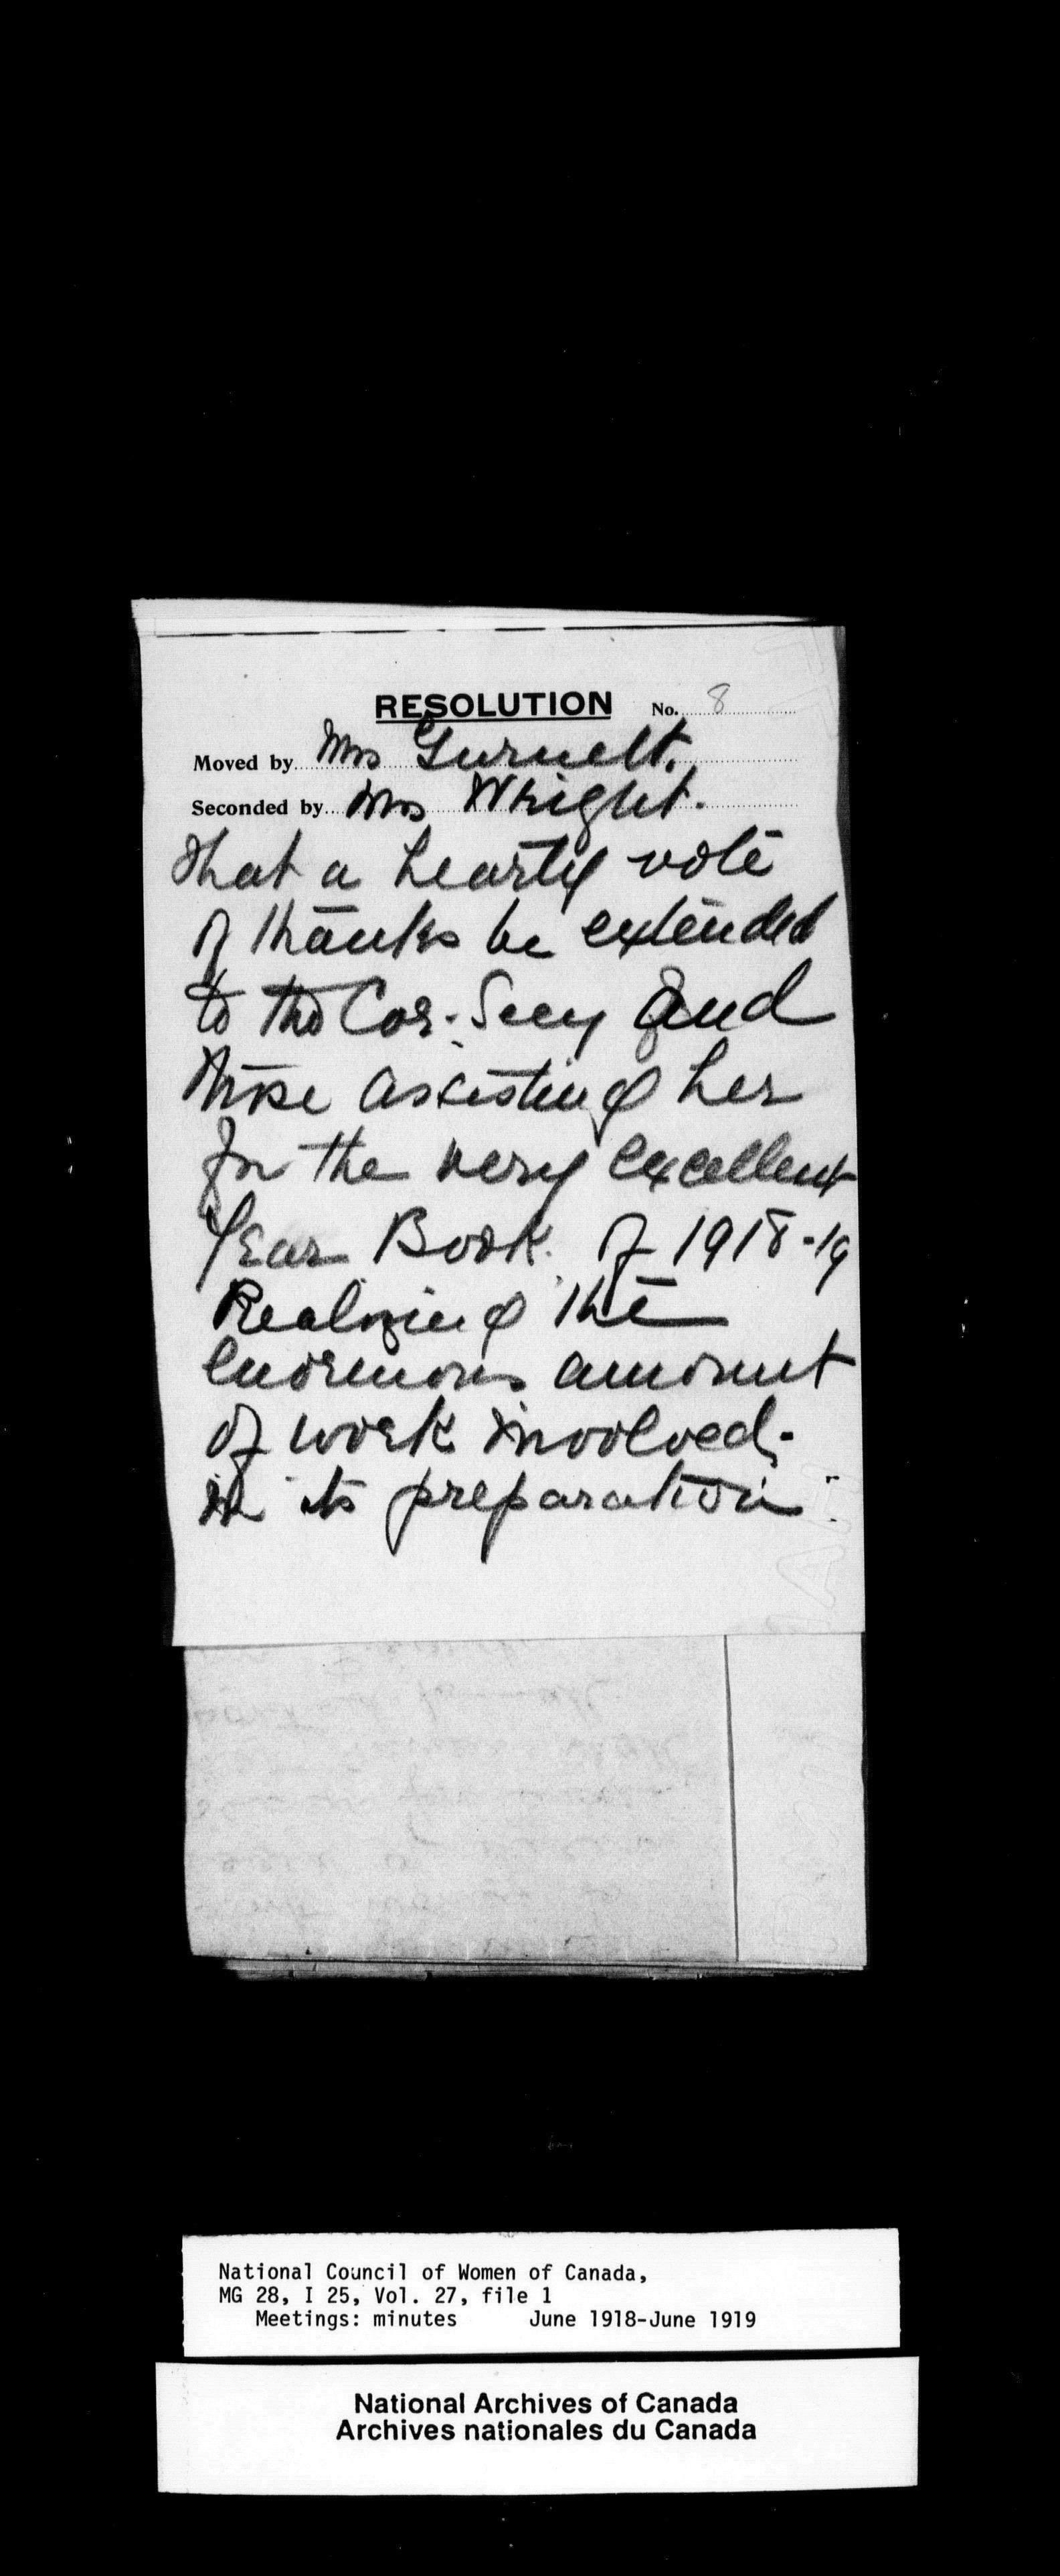 RESOLUTION No. 8
Moved by Mrs Gurnett.
Seconded by Mrs Wright.
that a hearty vote
of thanks be extended
to the Cor. Secy and
those assisting her
for the very excellent
Year Book of 1918-19
Realizing the
enormous amount
of work involved.
in its preparation.
National Council of Women of Canada,
MG 28, I 25, Vol. 27, file 1
Meetings: minutes June 1918-June 1919
National Archives of Canada
Archives nationales du Canada